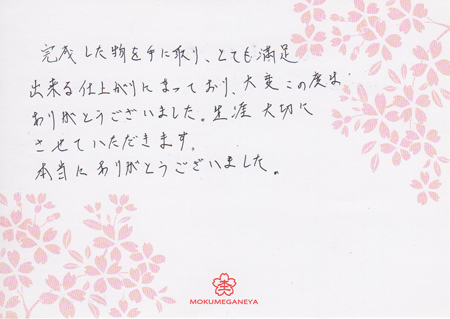 完成した物を手に取り、とても満足
出来る仕上がりになっており、大変この度は
ありがとうございました。生涯大切に
させていただきます。
本当にありがとうございました。
MOKUMEGANEYA